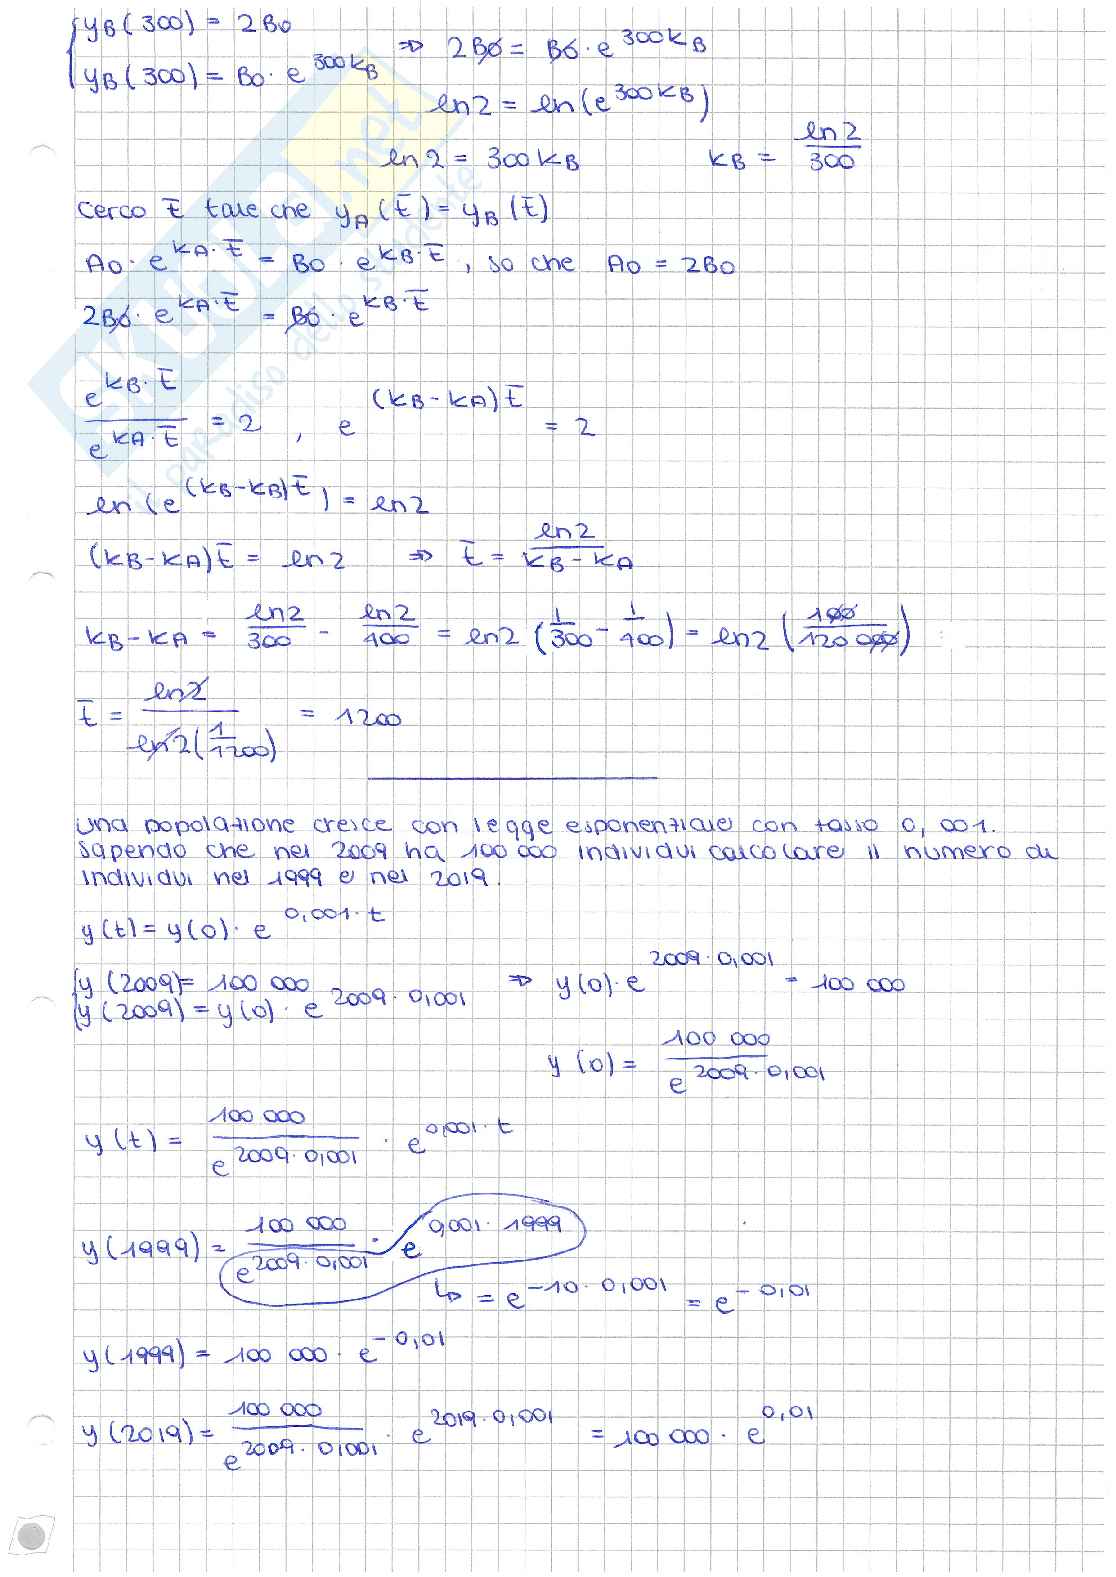 { yB(300) = 2B0
yB(300) = B0 · e^300kB ⇒ 2B0 = B0 · e^300kB
ln2 = ln(e^300kB)
ln2 = 300kB kB = ln2/300
Cerco t̄ tale che yA(t̄) = yB(t̄)
A0 · e^kA·t̄ = B0 · e^kB·t̄, so che A0 = 2B0
2B0 · e^kA·t̄ = B0 · e^kB·t̄
e^kB·t̄ / e^kA·t̄ = 2 , e^(kB-kA)t̄ = 2
ln(e^(kB-kB)t̄) = ln2
(kB-kA)t̄ = ln2 ⇒ t̄ = ln2/kB-kA
kB-kA = ln2/300 - ln2/400 = ln2 (1/300 - 1/400) = ln2 (100/120 000)
t̄ = ln2 / ln2(1/1200) = 1200
Una popolazione cresce con legge esponenziale con tasso 0,001.
Sapendo che nel 2009 ha 100 000 individui calcolare il numero di
individui nel 1999 e nel 2019.
y(t) = y(0) · e^0,001·t
{ y(2009) = 100 000 ⇒ y(0) · e^2009·0,001 = 100 000
y(2009) = y(0) · e^2009·0,001
y(0) = 100 000 / e^2009·0,001
y(t) = 100 000 / e^2009·0,001 · e^0,001·t
y(1999) = 100 000 / e^2009·0,001 · e^0,001·1999
↳ = e^-10·0,001 = e^-0,01
y(1999) = 100 000 · e^-0,01
y(2019) = 100 000 / e^2009·0,001 · e^2019·0,001 = 100 000 · e^0,01
skuola.net
il paradiso dello studente